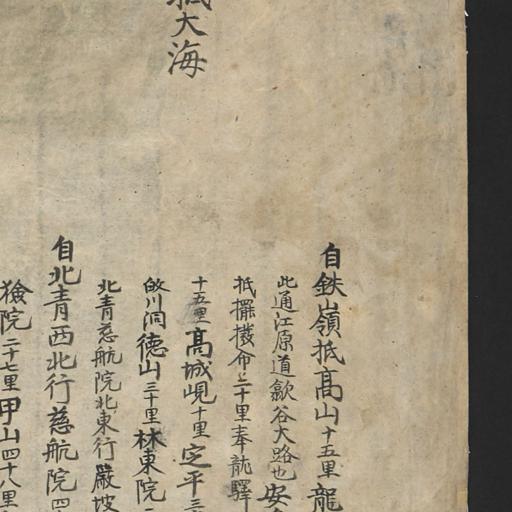 自鉄嶺抵高山十五里龍
此通江原道歙谷大路也安
抵擺撥命上十里奉龍驛
十五里高城峴十里定平三
德山三十里林東院
北青慈航院北東行嚴坡
自北青西北行慈航院四
院二十七里甲山四十八里
大海